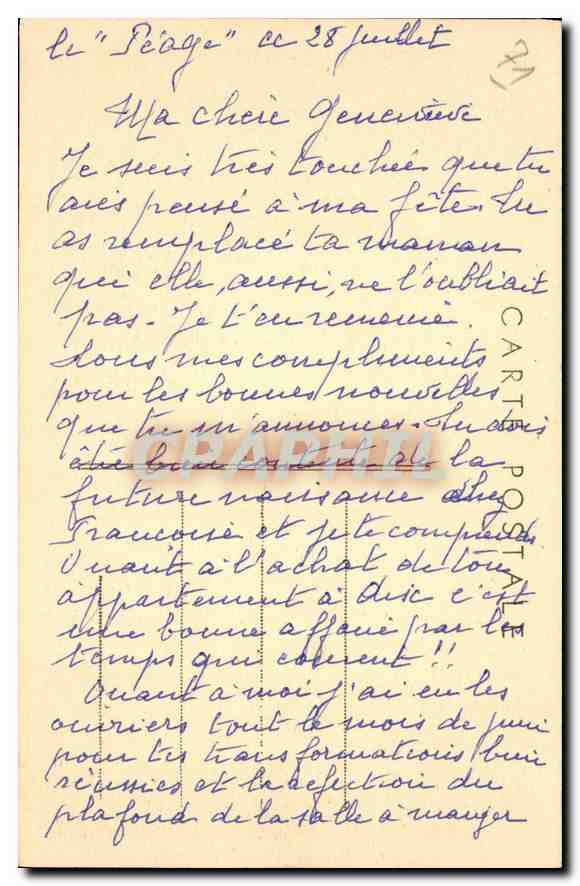 le "Péage" ce 28 juillet
71
Ma chère Geneviève
Je suis très touchée que tu
aies pensé à ma fête. Tu
as remplacé ta maman
qui elle, aussi, ne l'oubliait
pas - Je t'en remercie.
Tous mes compliments
pour les bonnes nouvelles
que tu m'annonces. Tu dois
être bien contente de la
future naissance chez
Francoise et je te comprends
Quant à l'achat de ton
appartement à c'est
une bonne affaire par les
temps qui courent !!
Quant à moi j'ai eu les
ouvriers tout le mois de juin
pour tes transformations bien
réussies et la refection du
plafond de la salle à manger
CARTE POSTALE
CPAPHIL